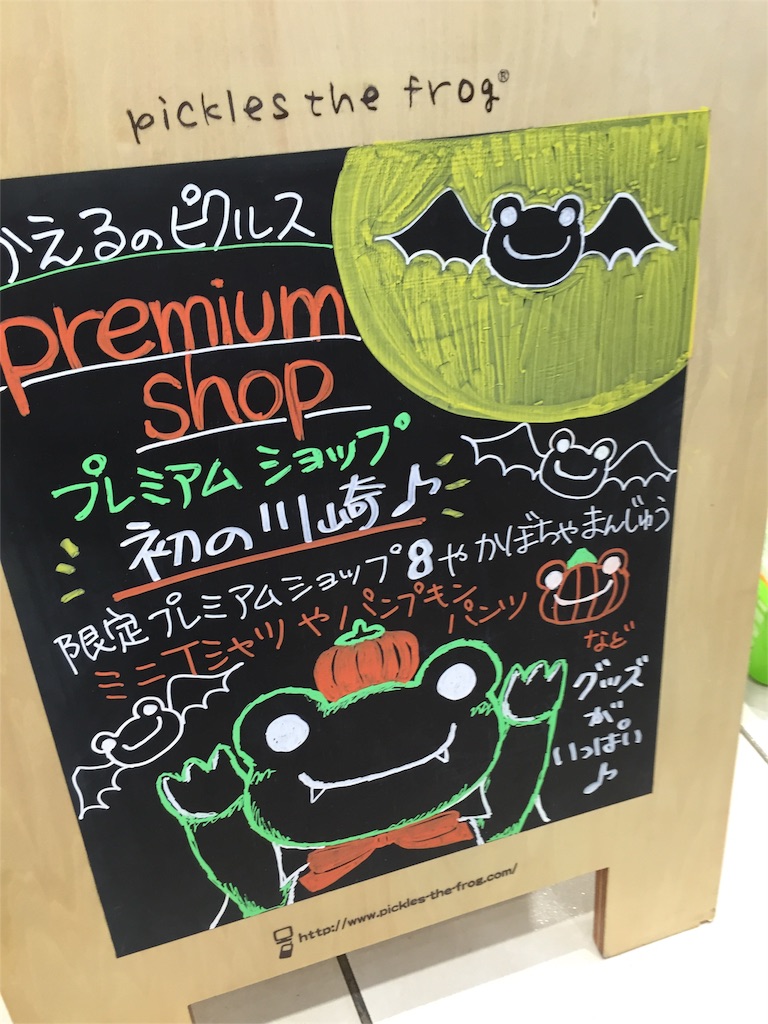 pickles the frog®
かえるのピクルス
premium
shop
プレミアム ショップ
初の川崎♪
限定プレミアムショップ8やかぼちゃまんじゅう
ミニTシャツやパンプキン
パンツ
など
グッズ
が
いっぱい
♪
http://www.pickles-the-frog.com/